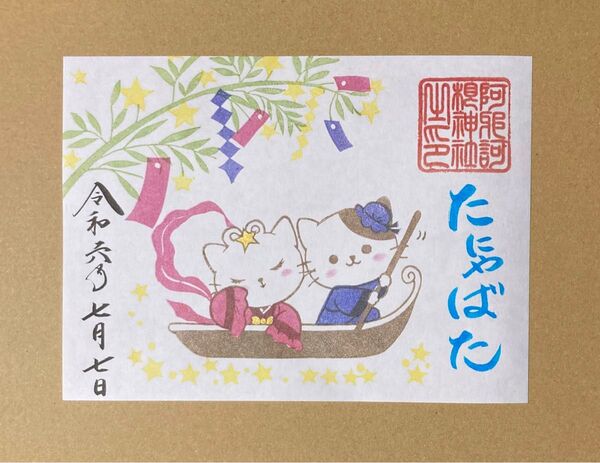 阿邪訶
根神社
之印
たにゃばた
令和六年七月七日